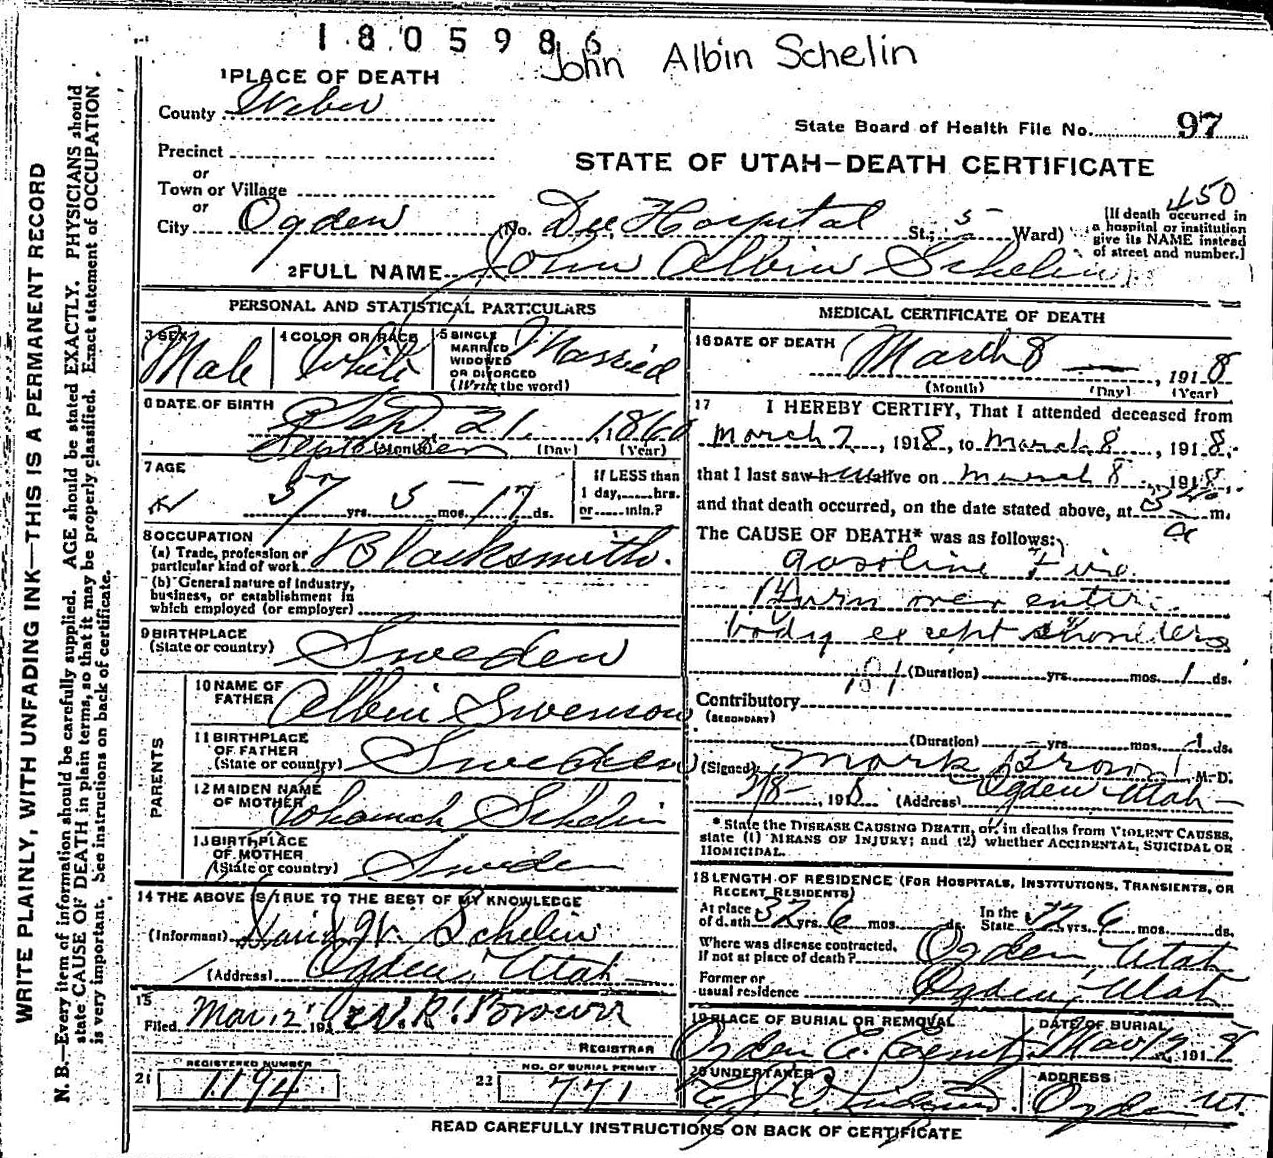 1805986
John Albin Schelin
1 PLACE OF DEATH
County Weber
State Board of Health File No. 97
Precinct
STATE OF UTAH—DEATH CERTIFICATE
or
Town or Village
or
450
City Ogden (No. Dee Hospital St.; 5 Ward)
[If death occurred in a hospital or institution give its NAME instead of street and number.]
2 FULL NAME John Albin Schelin
PERSONAL AND STATISTICAL PARTICULARS
3 SEX Male
4 COLOR OR RACE White
5 SINGLE MARRIED WIDOWED OR DIVORCED (Write the word) Married
6 DATE OF BIRTH Sep. 21, 1860
September (Month) (Day) (Year)
7 AGE
57 yrs. 5 mos. 17 ds.
If LESS than 1 day, hrs. or min.?
8 OCCUPATION
(a) Trade, profession or particular kind of work Blacksmith.
(b) General nature of industry, business, or establishment in which employed (or employer)
9 BIRTHPLACE
(State or country) Sweden
PARENTS
10 NAME OF FATHER Albin Swenson
11 BIRTHPLACE OF FATHER
(State or country) Sweden
12 MAIDEN NAME OF MOTHER Johannah Schelin
13 BIRTHPLACE OF MOTHER
(State or country) Sweden
14 THE ABOVE IS TRUE TO THE BEST OF MY KNOWLEDGE
(Informant) David W. Schelin
(Address) Ogden, Utah
15
Filed Mar 12 191 R. Brown
REGISTRAR
21 REGISTERED NUMBER 1194
22 NO. OF BURIAL PERMIT 771
MEDICAL CERTIFICATE OF DEATH
16 DATE OF DEATH March 8, 1918
(Month) (Day) (Year)
17 I HEREBY CERTIFY, That I attended deceased from
March 7, 1918, to March 8, 1918,
that I last saw h alive on March 8, 1918,
and that death occurred, on the date stated above, at m.
The CAUSE OF DEATH* was as follows:
gasoline Fire
Burn over entire
body except shoulders
(Duration) yrs. mos. 1 ds.
Contributory
(SECONDARY)
(Duration) yrs. mos. 1 ds.
(Signed) Mark Brown, M.D.
3/8, 1918 (Address) Ogden Utah
*State the DISEASE CAUSING DEATH, or, in deaths from VIOLENT CAUSES, state (1) MEANS OF INJURY; and (2) whether ACCIDENTAL, SUICIDAL OR HOMICIDAL.
18 LENGTH OF RESIDENCE (FOR HOSPITALS, INSTITUTIONS, TRANSIENTS, OR RECENT RESIDENTS)
At place of death 32 yrs. 6 mos. ds. In the State 32 yrs. 6 mos. ds.
Where was disease contracted, If not at place of death? Ogden Utah
Former or usual residence Ogden, Utah
19 PLACE OF BURIAL OR REMOVAL Ogden C. Cemt.
DATE OF BURIAL Mar 12, 1918
20 UNDERTAKER
ADDRESS Ogden Ut.
READ CAREFULLY INSTRUCTIONS ON BACK OF CERTIFICATE
WRITE PLAINLY, WITH UNFADING INK—THIS IS A PERMANENT RECORD
N. B.—Every item of information should be carefully supplied. AGE should be stated EXACTLY. PHYSICIANS should
state CAUSE OF DEATH in plain terms, so that it may be properly classified. Exact statement of OCCUPATION
is very important. See instructions on back of certificate.